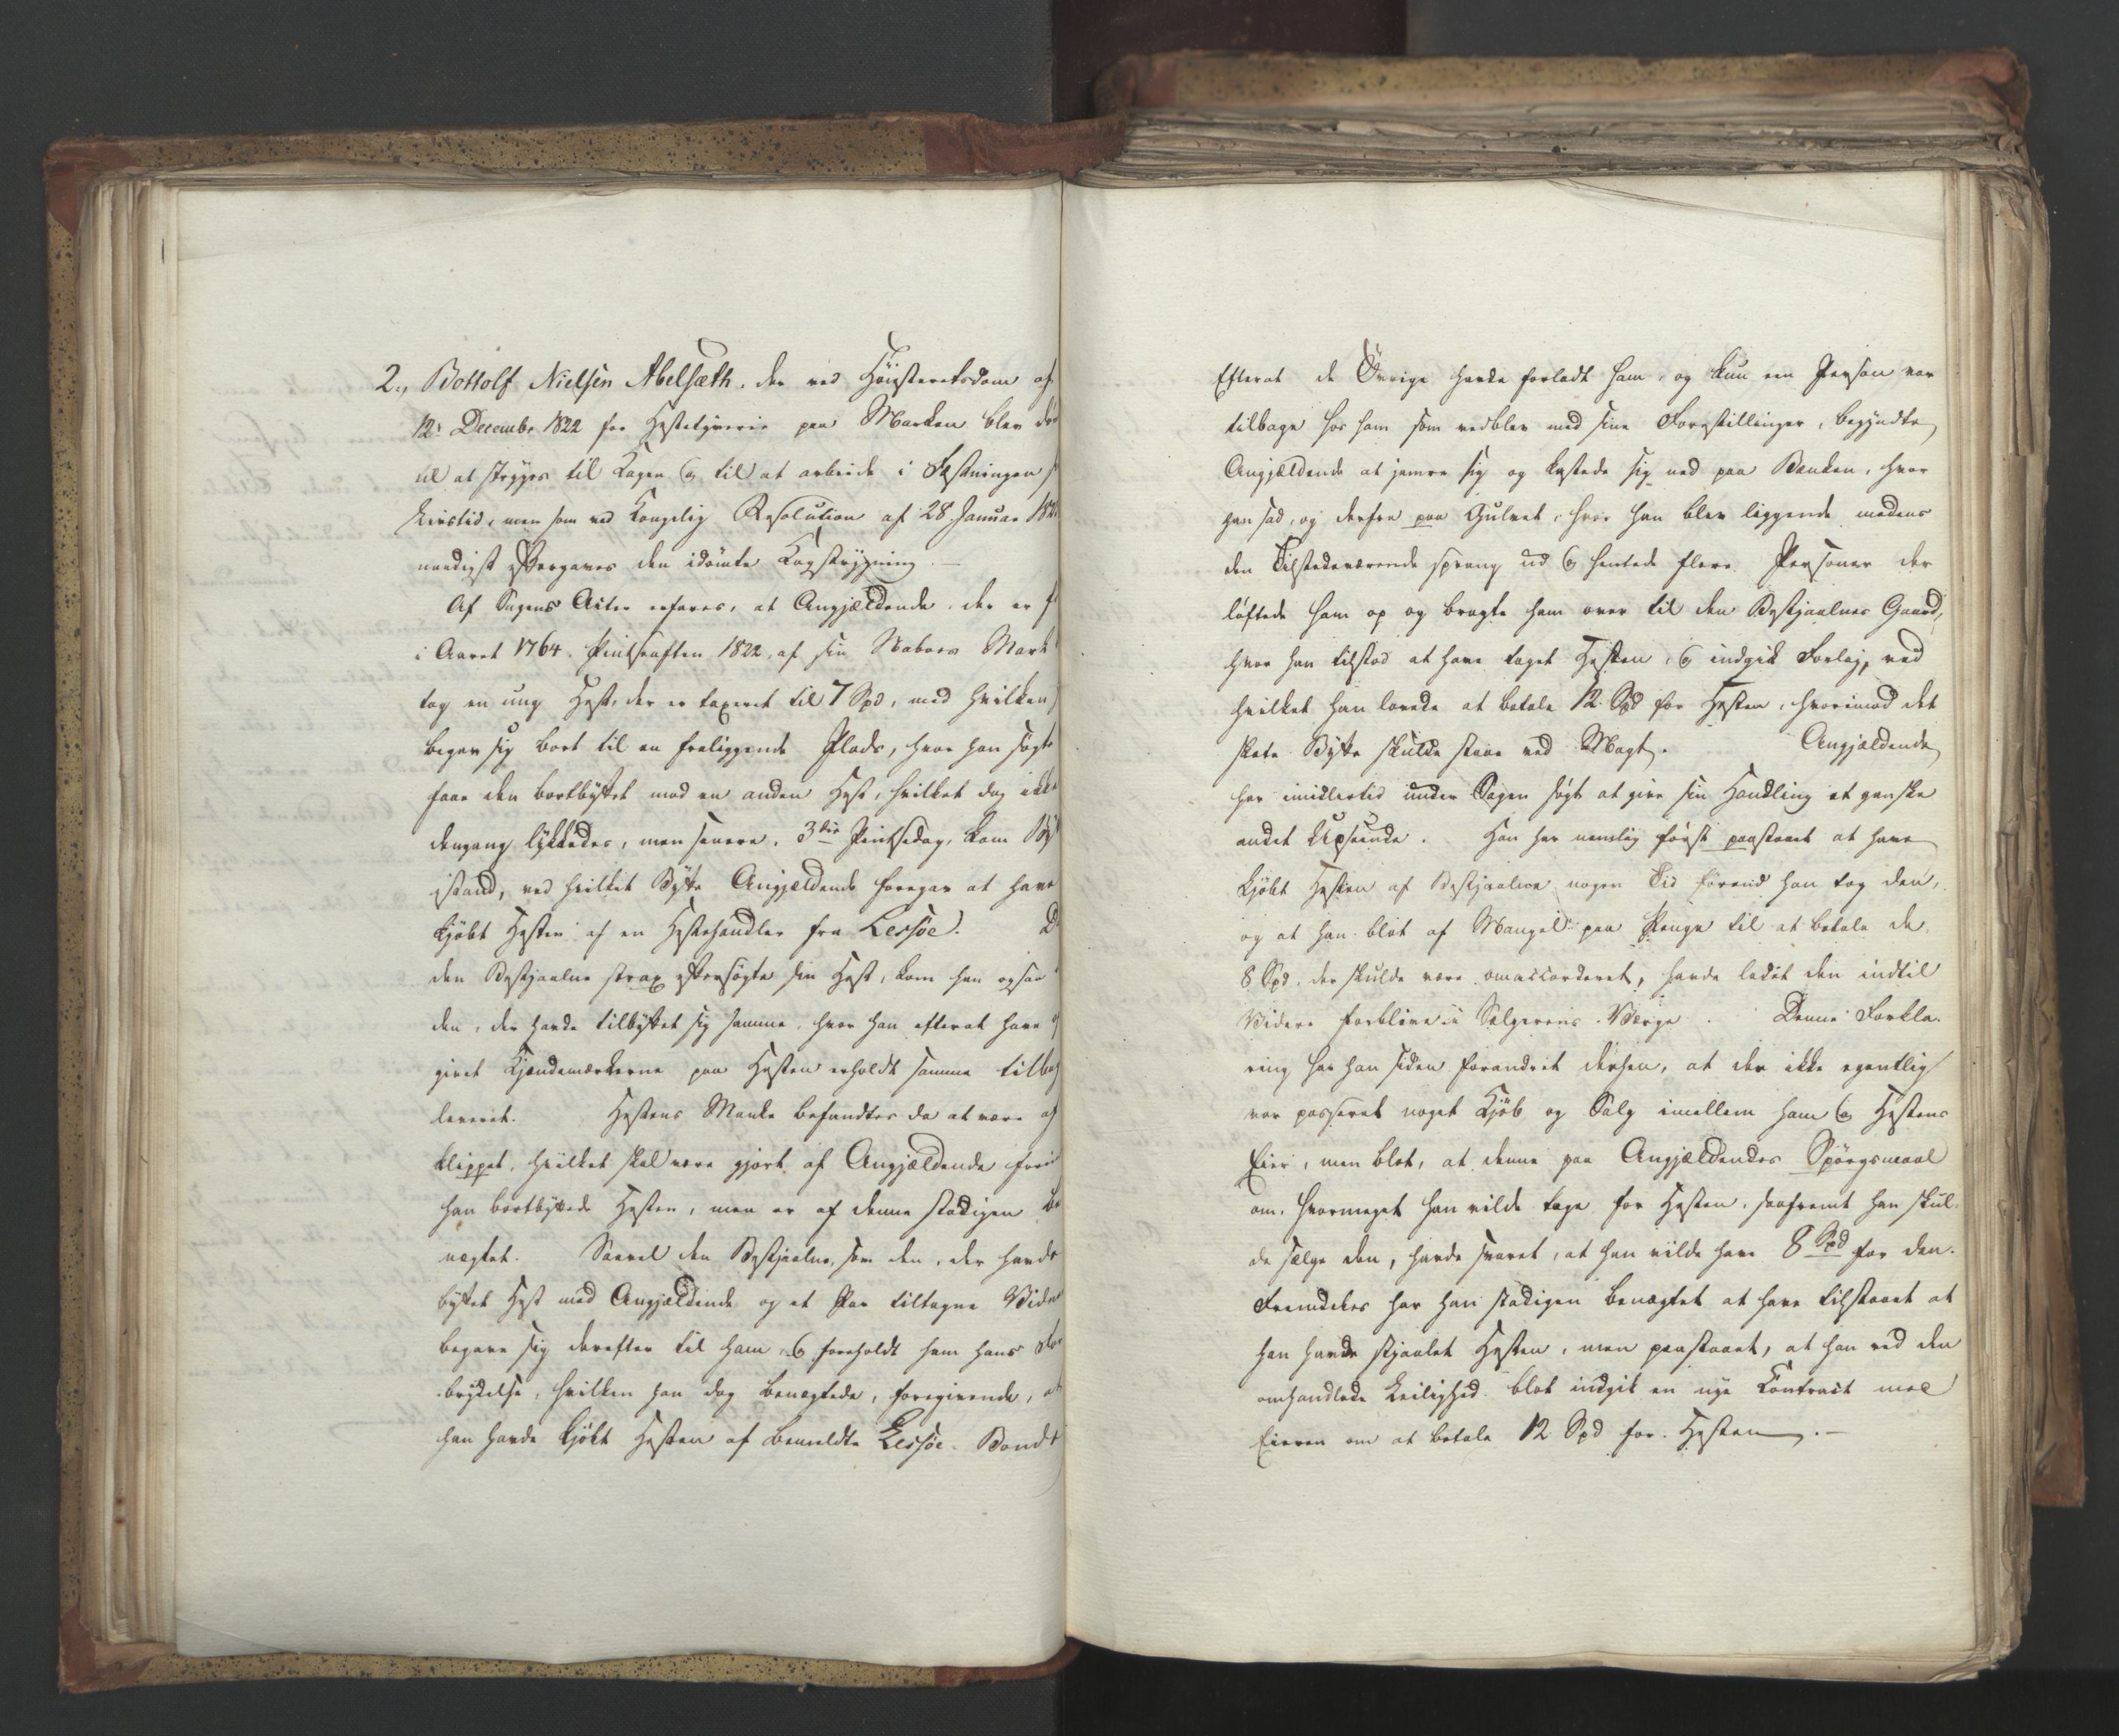 2., Bottolf Nielsen Abelsæth, der ved Höiesteretsdom af
12te Decembr 1822 for Hestetyverie paa Marken blev dö
til at stryges til Kagen og til at arbeide i Fæstningen
Livstid, men som ved Kongelig Resolution af 28 Januar 182
naadigst eftergaves den idömte Kagstrygning. —
Af Sagens Acter erfares, at Angjældende, der er f
i Aaret 1764. Pintseaften 1822, af sin Naboes Mark
tog en ung Hest, der er taxeret til 7 Spd, med hvilken
begav sig bort til en fraliggende Plads, hvor han sögte
faae den bortbyttet mod en anden Hest, hvilket dog ikke
dengang lykkedes, men senere, 3die Pintsedag, kom By
istand, ved hvilket Bytte Angjældende foregav at have
kjöbt Hesten af en Hestehandler fra Lessöe. D
den Bestjaalne strax eftersögte sin Hest, kom han ogsaa
den, der havde tilbyttet sig samme, hvor han efterat have
givet Kjendemærkerne paa Hesten erholdt samme tilba
leveret. Hestens Manke befandtes da at være af
klippet, hvilket skal være gjort af Angjældende foren
han bortbyttede Hesten, men er af denne stadigen be
nægtet. Saavel den Bestjaalne, som den, der havde
byttet Hest med Angjældende og et Par tiltagne Vidne
begave sig derefter til ham og foreholdt ham hans For
brydelse, hvilken han dog benægtede, foregivende, at
han havde kjöbt Hesten af bemeldte Lessöe-Bonde
Efterat de Övrige havde forladt ham, og kun een Person var
tilbage hos ham som vedblev med sine Forestillinger, begyndte
Angjældende at jamre sig og kastede sig ned paa Bænken, hvor
han sad, og derfra paa Gulvet, hvor han blev liggende medens
den Tilstedeværende sprang ud og hentede flere Personer der
löftede ham op og bragte ham over til den Bestjaalnes Gaard,
hvor han tilstod at have taget Hesten, og indgik Forlig, ved
hvilket han lovede at betale 12 Spd for Hesten, hvorimod det
skete Bytte skulde staae ved Magt. Angjældende
har imidlertid under Sagen sögt at give sin Handling et ganske
andet Udseende. Han har nemlig först paastaaet at have
kjöbt Hesten af Bestjaalne nogen Tid förend han tog den,
og at han blot af Mangel paa Penge til at betale de
8 Spd. der skulde være omaccorderet, havde ladet den indtil
Videre forblive i Sælgerens Værge. Denne Forkla-
ring har han siden forandret derhen, at der ikke egentlig
var passeret noget Kjöb og Salg imellem ham og Hestens
Eier, men blot, at denne paa Angjældendes Spörgsmaal
om, hvormeget han vilde tage for Hesten, saafremt han skul-
de sælge den, havde svaret, at han vilde have 8 Spd for den.
Fremdeles har han stadigen benægtet at have tilstaaet at
han havde stjaalet Hesten, men paastaaet, at han ved den
omhandlede Leilighed blot indgik en nye Contract med
Eieren om at betale 12 Spd for Hesten. —